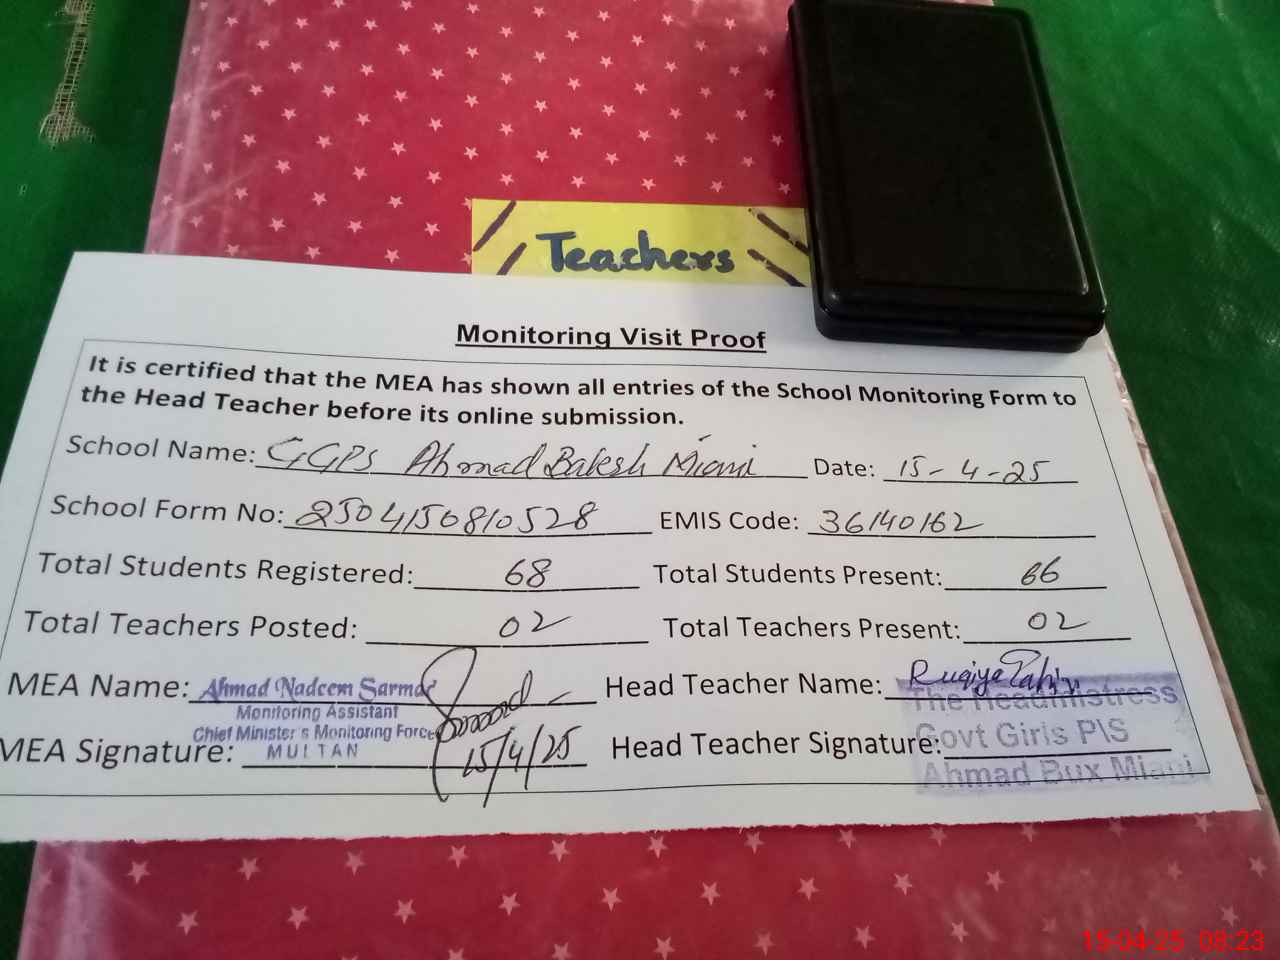 Teachers
Monitoring Visit Proof
It is certified that the MEA has shown all entries of the School Monitoring Form to
the Head Teacher before its online submission.
School Name: GGPS Ahmad Bakesh Miani Date: 15-4-25
School Form No: 2504150810528 EMIS Code: 36140162
Total Students Registered: 68 Total Students Present: 66
Total Teachers Posted: 02 Total Teachers Present: 02
MEA Name: Ahmad Nadeem Sarmad Head Teacher Name: Ruqiya Tahir
Monitoring Assistant
Chief Minister's Monitoring Force
MULTAN
MEA Signature: 15/4/25 Head Teacher Signature:
The Headmistress
Govt Girls P\S
Ahmad Bux Miani
15-04-25 08:23